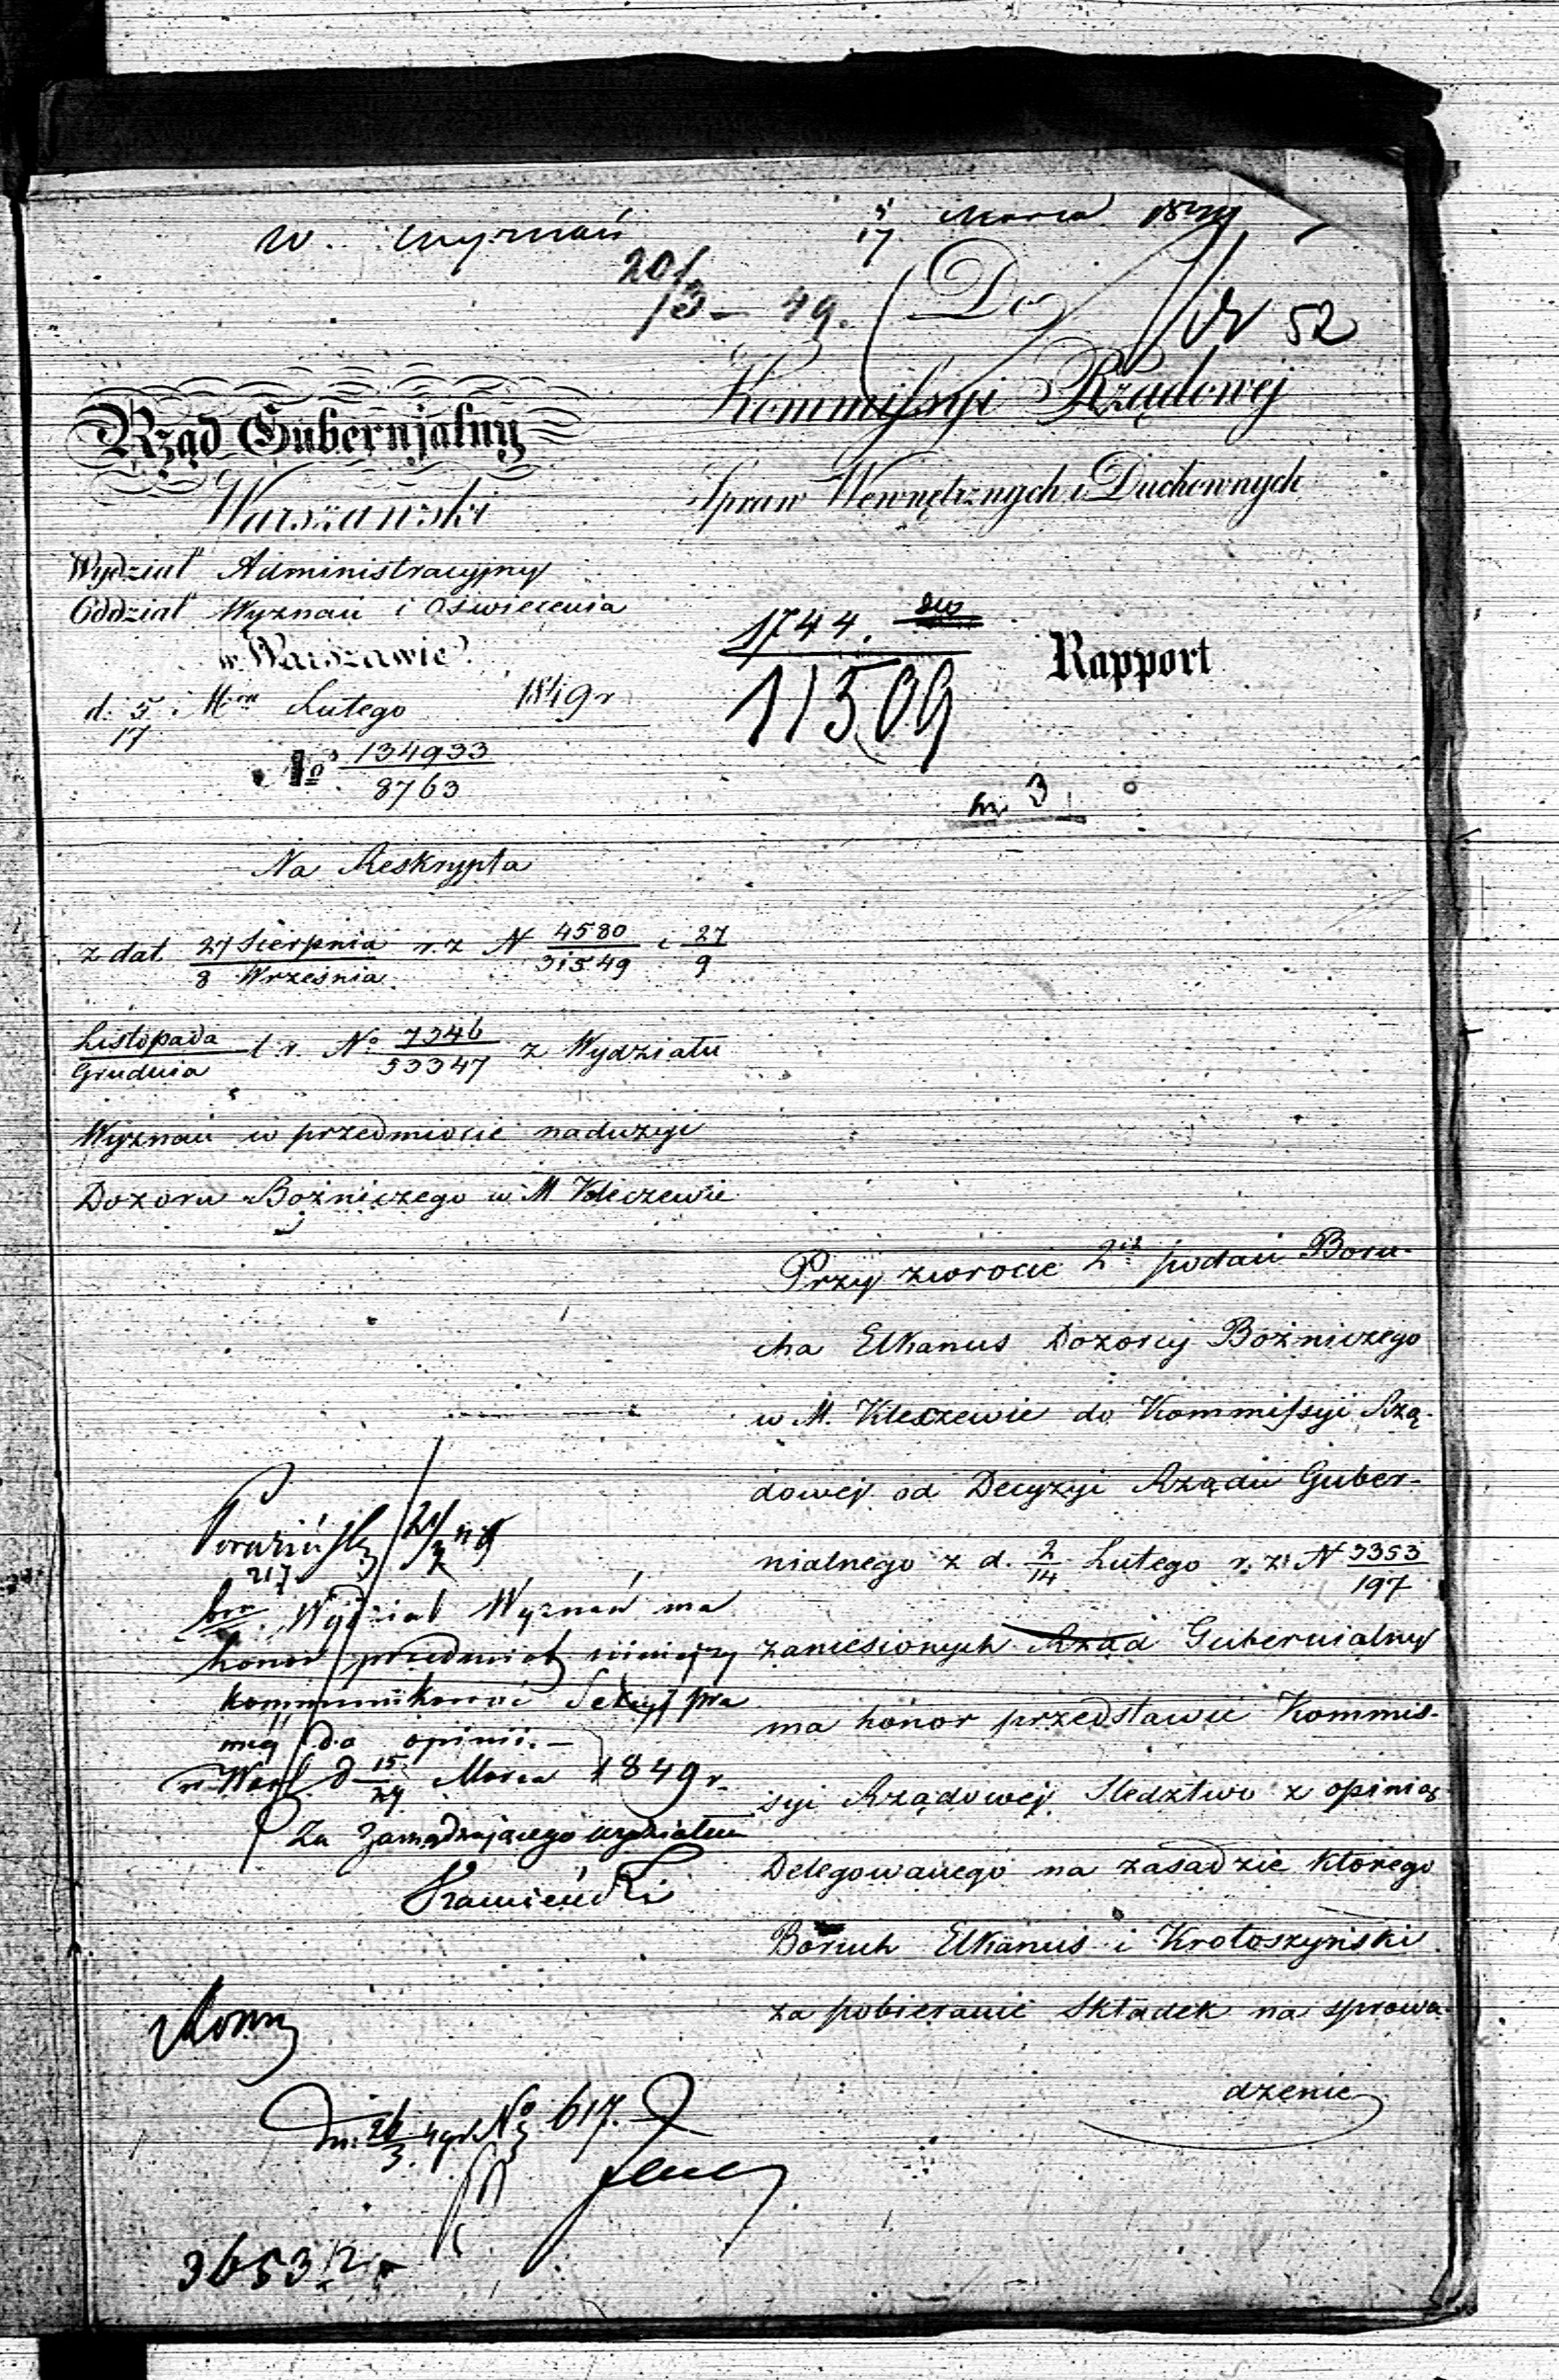 W. Wyznań
5/17 Marca 1849
20/3 - 49.
Do
52
Kommissyi Rządowej
Spraw Wewnętrznych i Duchownych
Rząd Gubernjalny
Warszawski
Wydział Administracyjny
Oddział Wyznań i Oświecenia
w Warszawie
d. 5/17 Mca Lutego 1849 r
No 134933/8763
1744.
11509
Rapport
3
Na Reskrypta
z dat 27 Sierpnia/8 Września r. z N 4580/31549 i 27/9
Listopada/Grudnia t. r. No 7346/53347 z Wydziału
Wyznań w przedmiocie nadużyć
Dozoru Bożniczego w M Kleczewie
Przy zwrocie 2ch podań Boru-
cha Elkanus Dozorcy Bożniczego
w M. Kleczewie do Kommissyi Rzą-
dowej od Decyzyi Rządu Guber-
nialnego z d. 2/14 Lutego r. z. N 3353/197
zaniesionych Rząd Gubernialny
ma honor przedstawić Kommis-
syi Rządowej Sledztwo z opinią
Delegowanego na zasadzie którego
Boruch Elkanus i Krotoszyński
za pobieranie Składek na sprowa-
dzenie
217
Wydział Wyznań ma
honor przedmiot niniejszy
kommunikować Sekcyi pra
wnej do opinii. -
w Wars. d 15/27 Marca 1849 r.
Za Zarządzającego wydziałem
Kamieński
26/3 49 r No 617.
3653